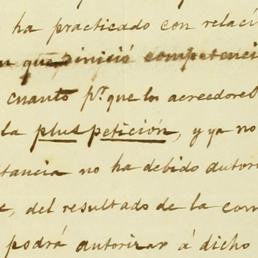 ha practicado con relaci
que inició competenci
cuanto pr. que los acreedores
la plus peticion, y ya no
tancia no ha debido autor
, del resultado de la com
podrá autorizar á dicho